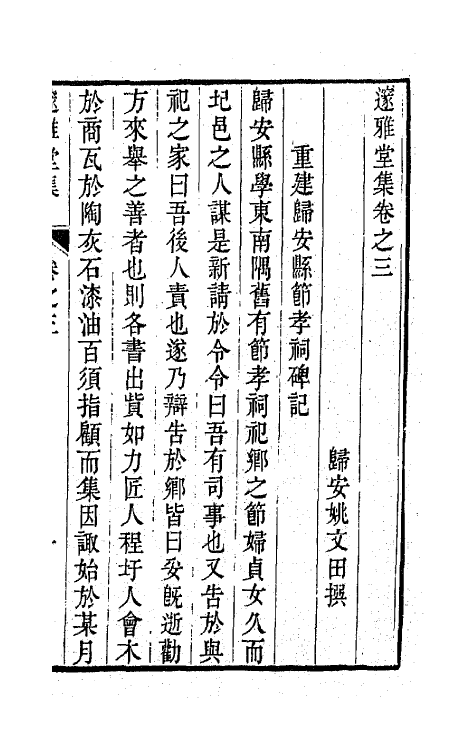 邃雅堂集卷之三
歸安姚文田撰
重建歸安縣節孝祠碑記
歸安縣學東南隅舊有節孝祠祀鄉之節婦貞女久而
圮邑之人謀是新請於令令曰吾有司事也又告於與
祀之家曰吾後人責也遂乃辯告於鄉皆曰妥旣逝勸
方來舉之善者也則各書出貲如力匠人程圬人會木
於商瓦於陶灰石漆油百須指顧而集因諏始於某月
邃雅堂集
卷之三
一